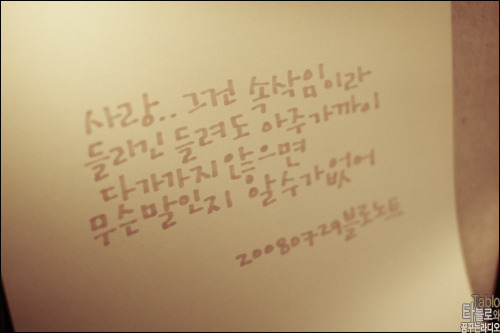 사랑.. 그건 속삭임이라
들리긴 들려도 아주가까이
다가가지 않으면
무슨말인지 알수가없어
20080729블로노트
Tablo
타블로와
꿈꾸는라디오